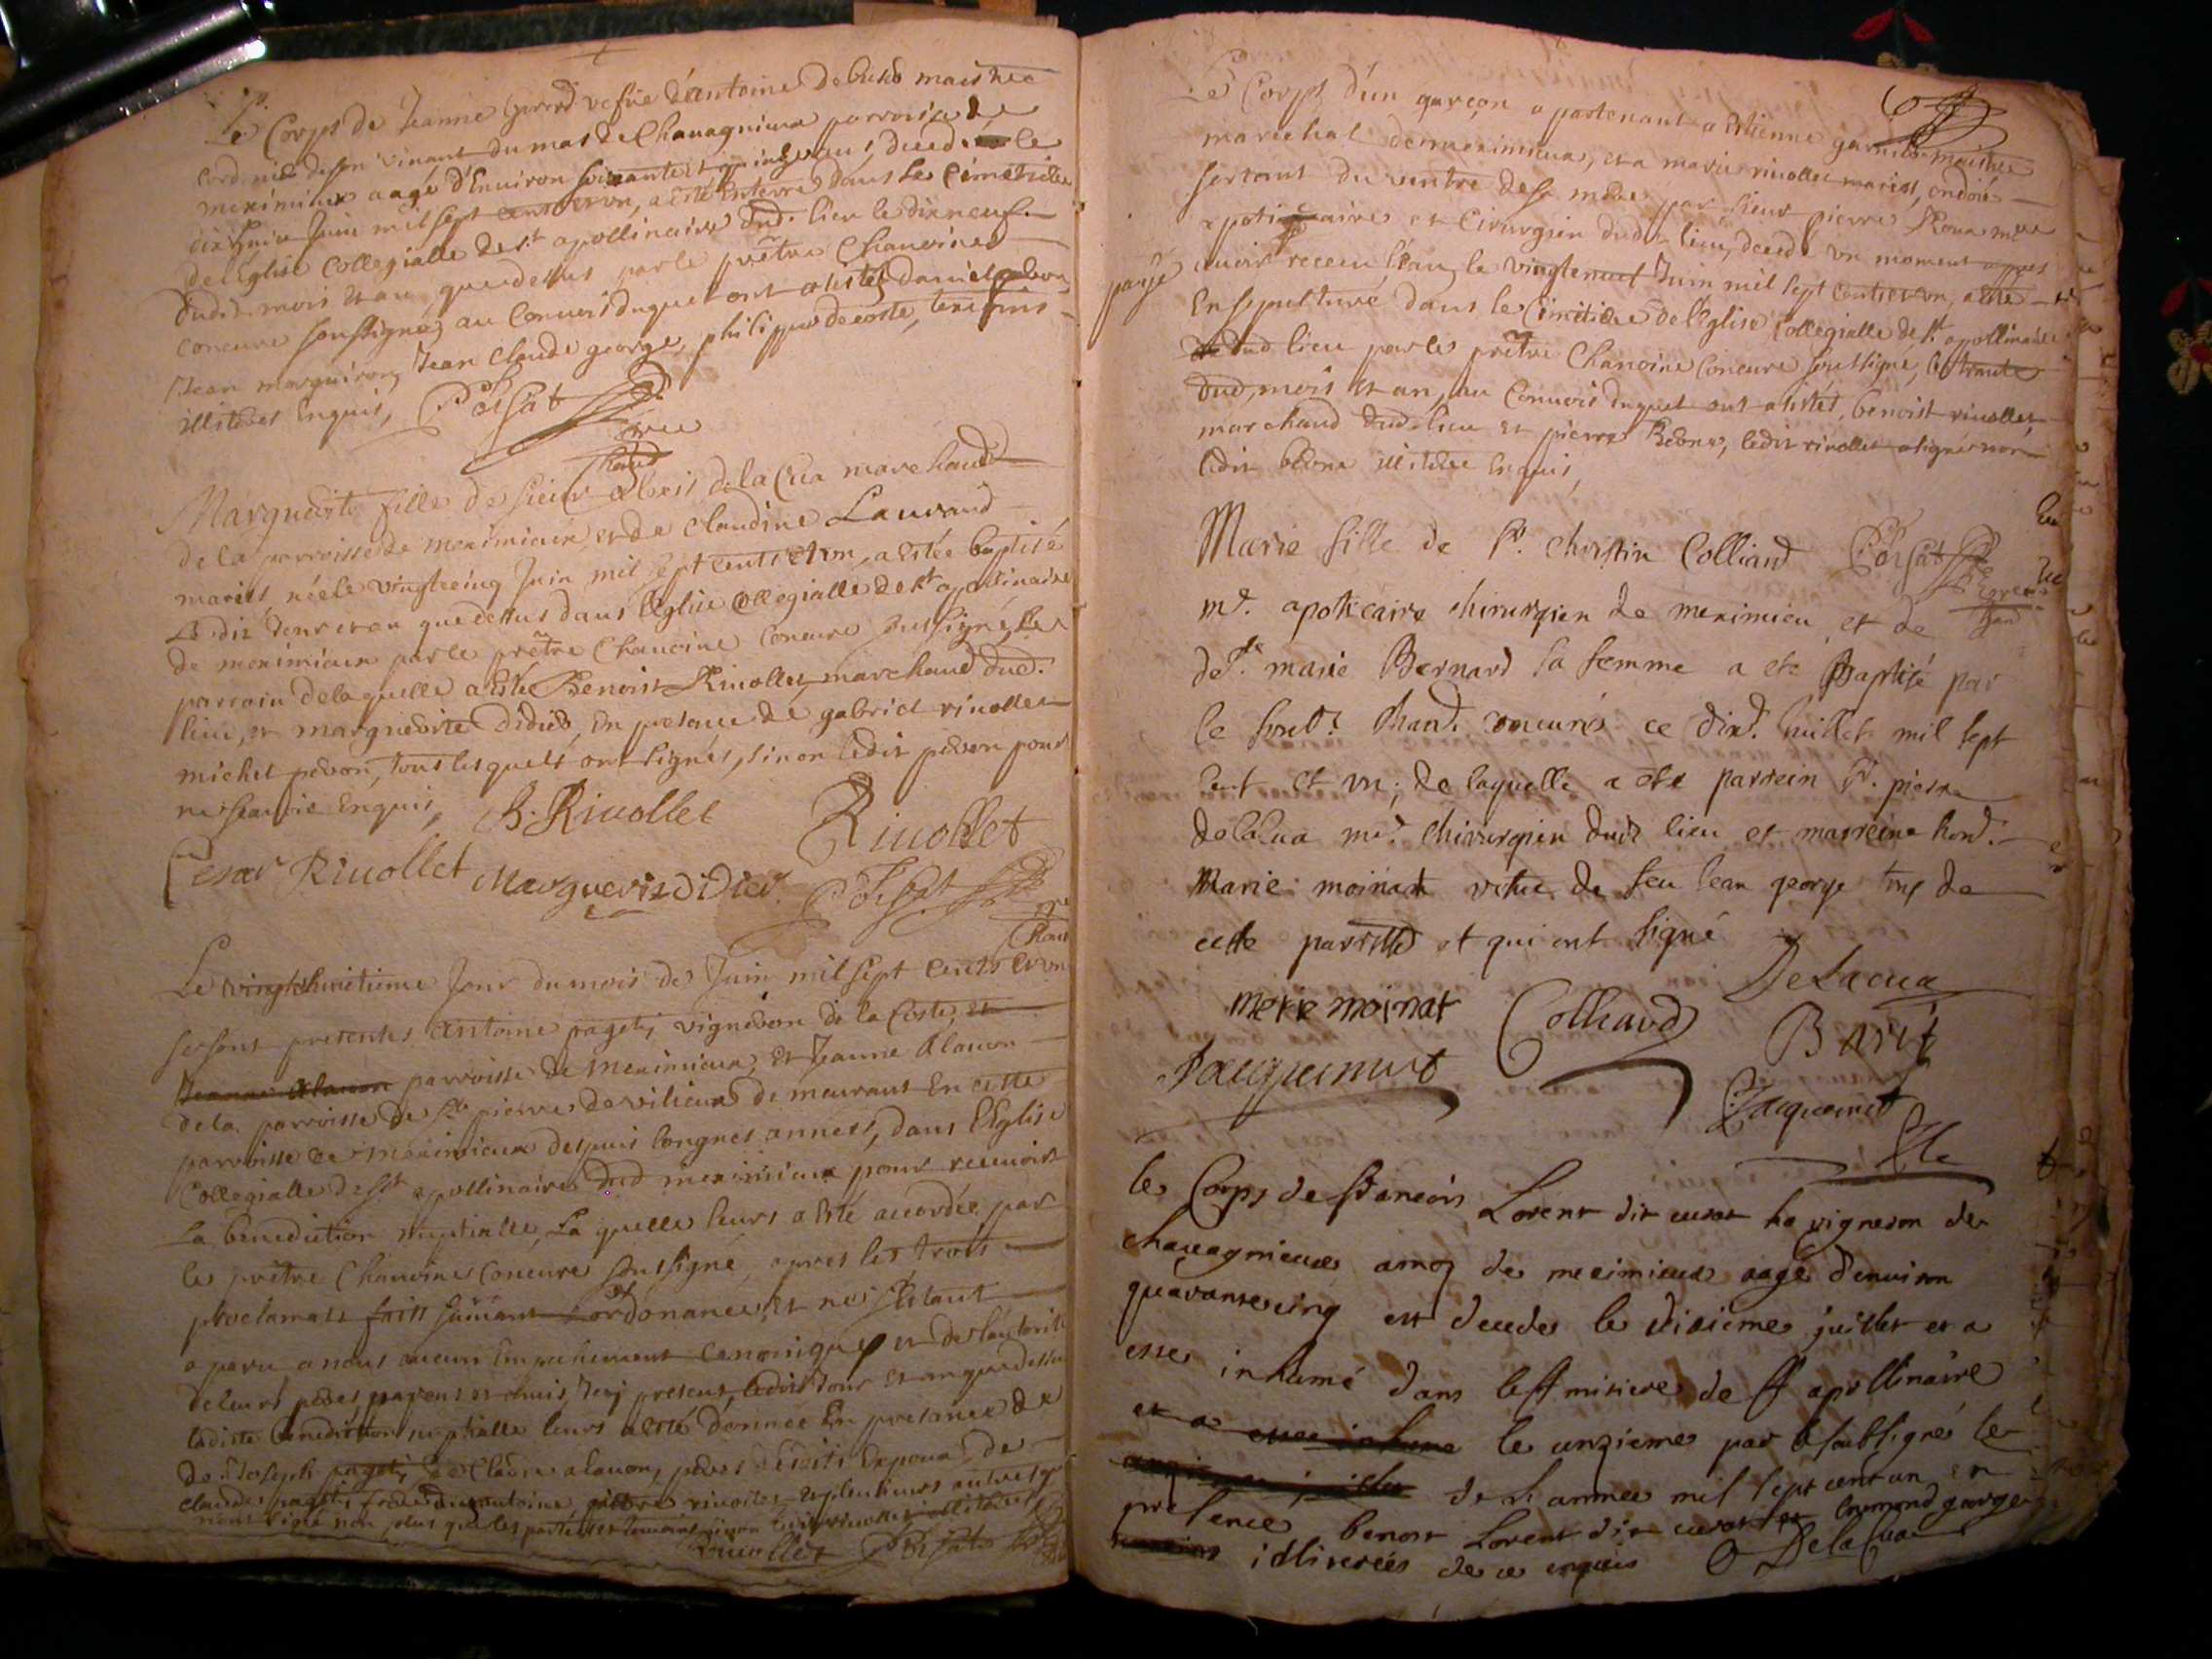 Le Corps de Jeanne Girerd vefue d'antoine debuis maistre
Cordnier de son vivant du mas de Chauagnieux parroisse de
meximieux aagé d'Enuiron soixante et quinze ans, deced. le
dixhuict Juin mil sept cents et vn, a esté Enterré dans le Cimetiere
de l'Eglise Collegialle de st apollinaire dud. lieu le dixneuf
dudit mois et an que dessus par le prêtre Chanoine
concure soussigné, au Conuois duquel ont assistés daniel
Jean Jean Claude george, philippe decoste,
illiterés Enquis, Persat
cure
Chane
Marguerite fille de sieur alexis de la Cua marchand
de la parroisse de meximieux, et de Claudine Lauurand
mariés, née le vingtcinq Juin mil sept cents et vn, a estée baptisé
Ledit Jour et an que dessus dans l'Eglise Collegialle de st apollinaire
de meximieux par le prêtre Chanoine Concure soussigné, le
parrain de laquelle a esté Benoist Riuollet, marchand dud.
lieu, et marguerite Didier, En presence de gabriel riuollet
michel peron, tous lesquels ont signés, sinon ledit peron pour
ne scauoir Enquis, B. Riuollet Riuollet
Cesar Riuollet Marguerite Didier Persat
cure
Chane
Le vingthuictieme Jour du mois de Juin mil sept cents et vn
se sont presentés antoine paget, vigneron de la Coste, et
Jeanne Alauon parroisse de meximieux, et Jeanne Alauon
de la parroisse de st pierre de vilieux demeurant En cette
parroisse de meximieux despuis longues annees, dans l'Eglise
Collegialle de st apollinaire dud meximieux pour receuoir
La benediction nuptialle, La quelle leurs a esté accordée par
le prêtre Chanoine Concure soussigné, apres les trois
proclamats faits suiuant l'ordonance, et ne s'estant
aparu a nous aucun Empechement Canonique et de l'autorité
de leurs peres parens et amis, icy presens, ledit Jour et an que dessus
ladite benediction nuptialle leurs a esté donnée En presance de
de Joseph paget, de Claude alauon, peres desdits Epoux de
claude paget, frere dud antoine, riuollet et plusieurs autres
non signé non plus que les parties et temoins sinon ledit riuollet illiterés
Riuollet Persat
Le Corps d'un garçon apartenant a Estienne garnier maistre
marechal de meximieux, et a marie riuollet mariés, ondoié
sortant du ventre de sa mere par sieur pierre Roua me
apoticaire et Cirurgien dudit lieu, decedé vn moment apres
auoir receu l'eau, le vingtneuf Juin mil sept cents et vn, a esté
payé
Ensepulturé dans le Cimetiere de l'Eglise Collegialle de st apollinaire
dud lieu par le prêtre Chanoine Concure soussigné, le trante
dud, mois et an, au Conuois duquel ont assistés, benoist riuollet
marchand dud. lieu et pierre Bedone, ledit riuollet a signé non
ledit bedone illiteré Enquis,
Marie fille de Sr. Christin Colliand Persat
cure
Chan
me. apoticaire chirurgien de meximieu et de
delle. marie Bernard sa femme a ete Baptisé par
le sousé. Chané. concuré ce dixe. Juillet mil sept
cent et vn; de laquelle a été parrein Sr. pierre
delaCua me. chirurgien dudt lieu et marreine honé.
Marie moinat vefue de feu Jean george tous de
cette parroisse et qui ont signé
merie moinat Colliard DeLacua
Jacquemet Barit
Jacquemet
le Corps de francois Lorent dit curat ho vigneron de
chauagnieux amoz de meximieux aagé d'enuiron
quarantecinq est decedes le dixieme juillet et a
esse inhumé dans le semitiere de st apollinaire
et a esse inhume le unzieme par le soubsigné le
de l'annee mil sept cent un en
presence benoit Lorent dit curat et leymond george
temoins illiterées de ce enquis DelaCua